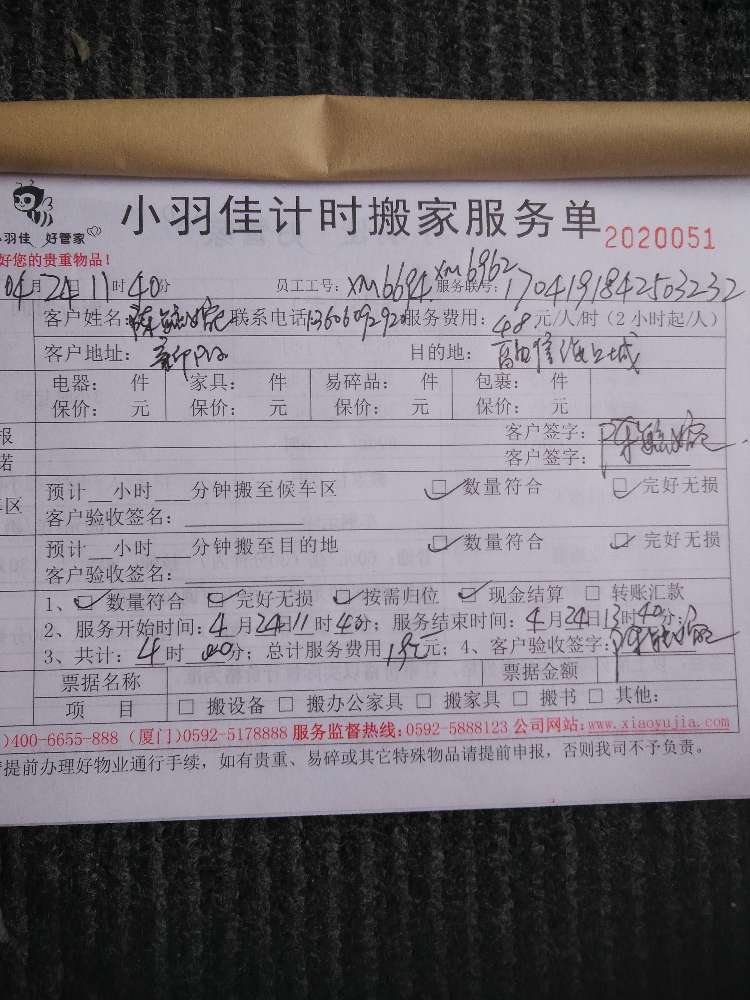 小羽佳计时搬家服务单
2020051
羽佳 好管家
好您的贵重物品！
04月24日11时40分 员工工号：XM6694 XM6962 服务联号：1704191842503232
客户姓名： 联系电话 服务费用：48元/人/时（2小时起/人）
客户地址： 目的地：
电器： 件 家具： 件 易碎品： 件 包裹： 件
保价： 元 保价： 元 保价： 元 保价： 元
报 客户签字：
诺 客户签字：
预计__小时___分钟搬至候车区 数量符合 完好无损
车区
客户验收签名：
预计__小时___分钟搬至目的地 数量符合 完好无损
客户验收签名：
1、 数量符合 完好无损 按需归位 现金结算 转账汇款
2、服务开始时间：4月24日11时40分；服务结束时间：4月24日13时40分；
3、共计：4时00分；总计服务费用 元；4、客户验收签字：
票据名称 票据金额
项 目 搬设备 搬办公家具 搬家具 搬书 其他：
)400-6655-888 (厦门)0592-5178888 服务监督热线:0592-5888123 公司网站:www.xiaoyujia.com
提前办理好物业通行手续，如有贵重、易碎或其它特殊物品请提前申报，否则我司不予负责。